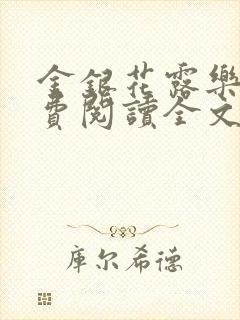 金銀花露樂
費閱讀全文
库尔希德